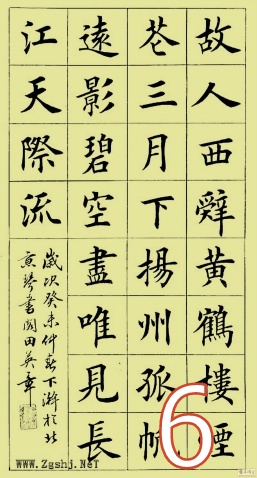 故人西辭黃鶴樓煙
花三月下揚州孤帆
遠影碧空盡唯見長
江天際流
歲次癸未仲春下澣於北
京琴書園田英章
6
www.Zgshj.NeT